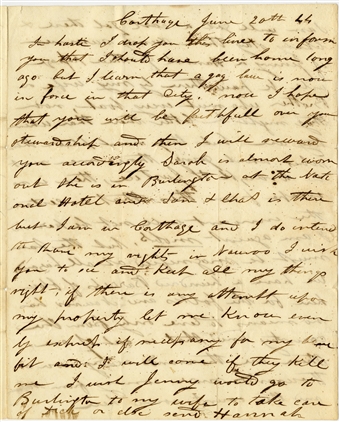 Carthage June 20th 44
In haste I drop you this line to inform
you that I should have been home long
ago but I learn that a gag law is now
in force in that City. now I hope
that you will be faithfull over your
stewardship and then I will reward
you accordingly Sarah is almost worn
out She is in Burlington at the Nat
onil Hotel and Son & Chas is there
but I am in Carthage and I do intend
to have my rights in Nauvoo I wish
you to see and Keep all my things
right, if there is any attempt upon
my property let me Know even
ly express if necessary for my
bit and I will come if they kill
me I wish Jenny would go to
Burlington to my wife to take care
of or else send Hannah